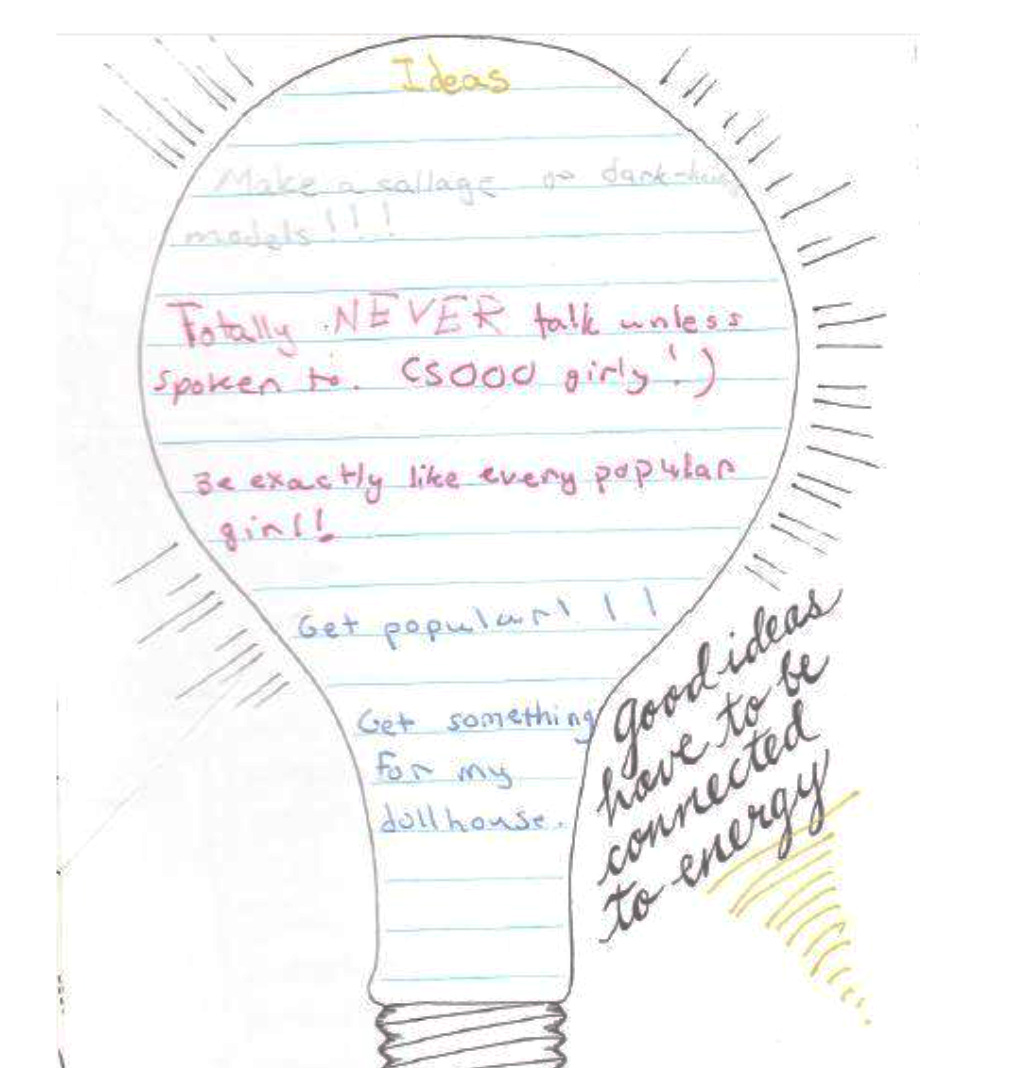 Ideas
Make a sallage
models!!!
Totally NEVER talk unless
spoken to. (sooo girly!)
Be exactly like every popular
girl!
Get popular! ! !
Get something
for my
dollhouse.
good ideas
have to be
connected
to energy